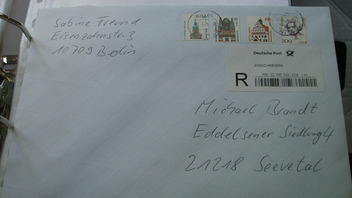 Sabine Freund
Eisenzahnstr. 3
10709 Berlin
Deutsche Post
EINSCHREIBEN
R
Michael Brandt
Eddelsener Siedlung 4
21218 Seevetal